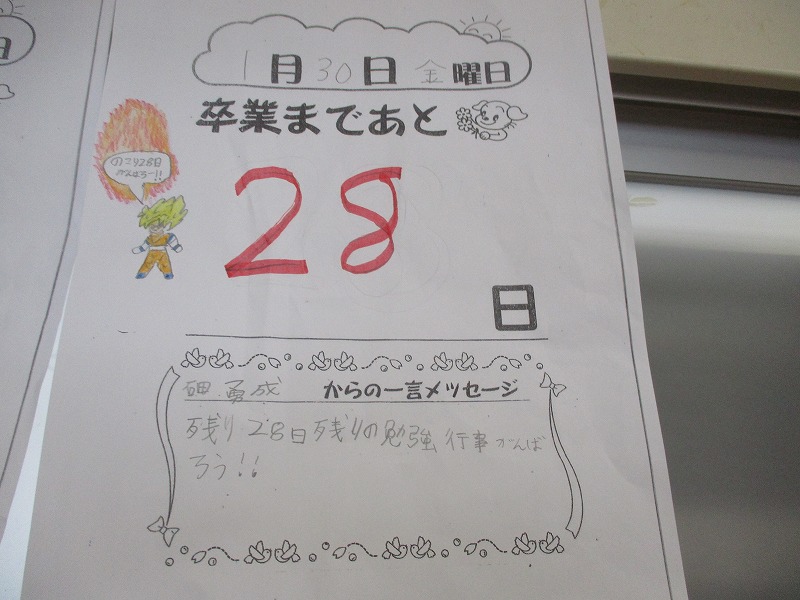 1月30日 金曜日
卒業まであと
28
日
勇成 からの一言メッセージ
残り28日残りの勉強行事がんば
ろう!!
日